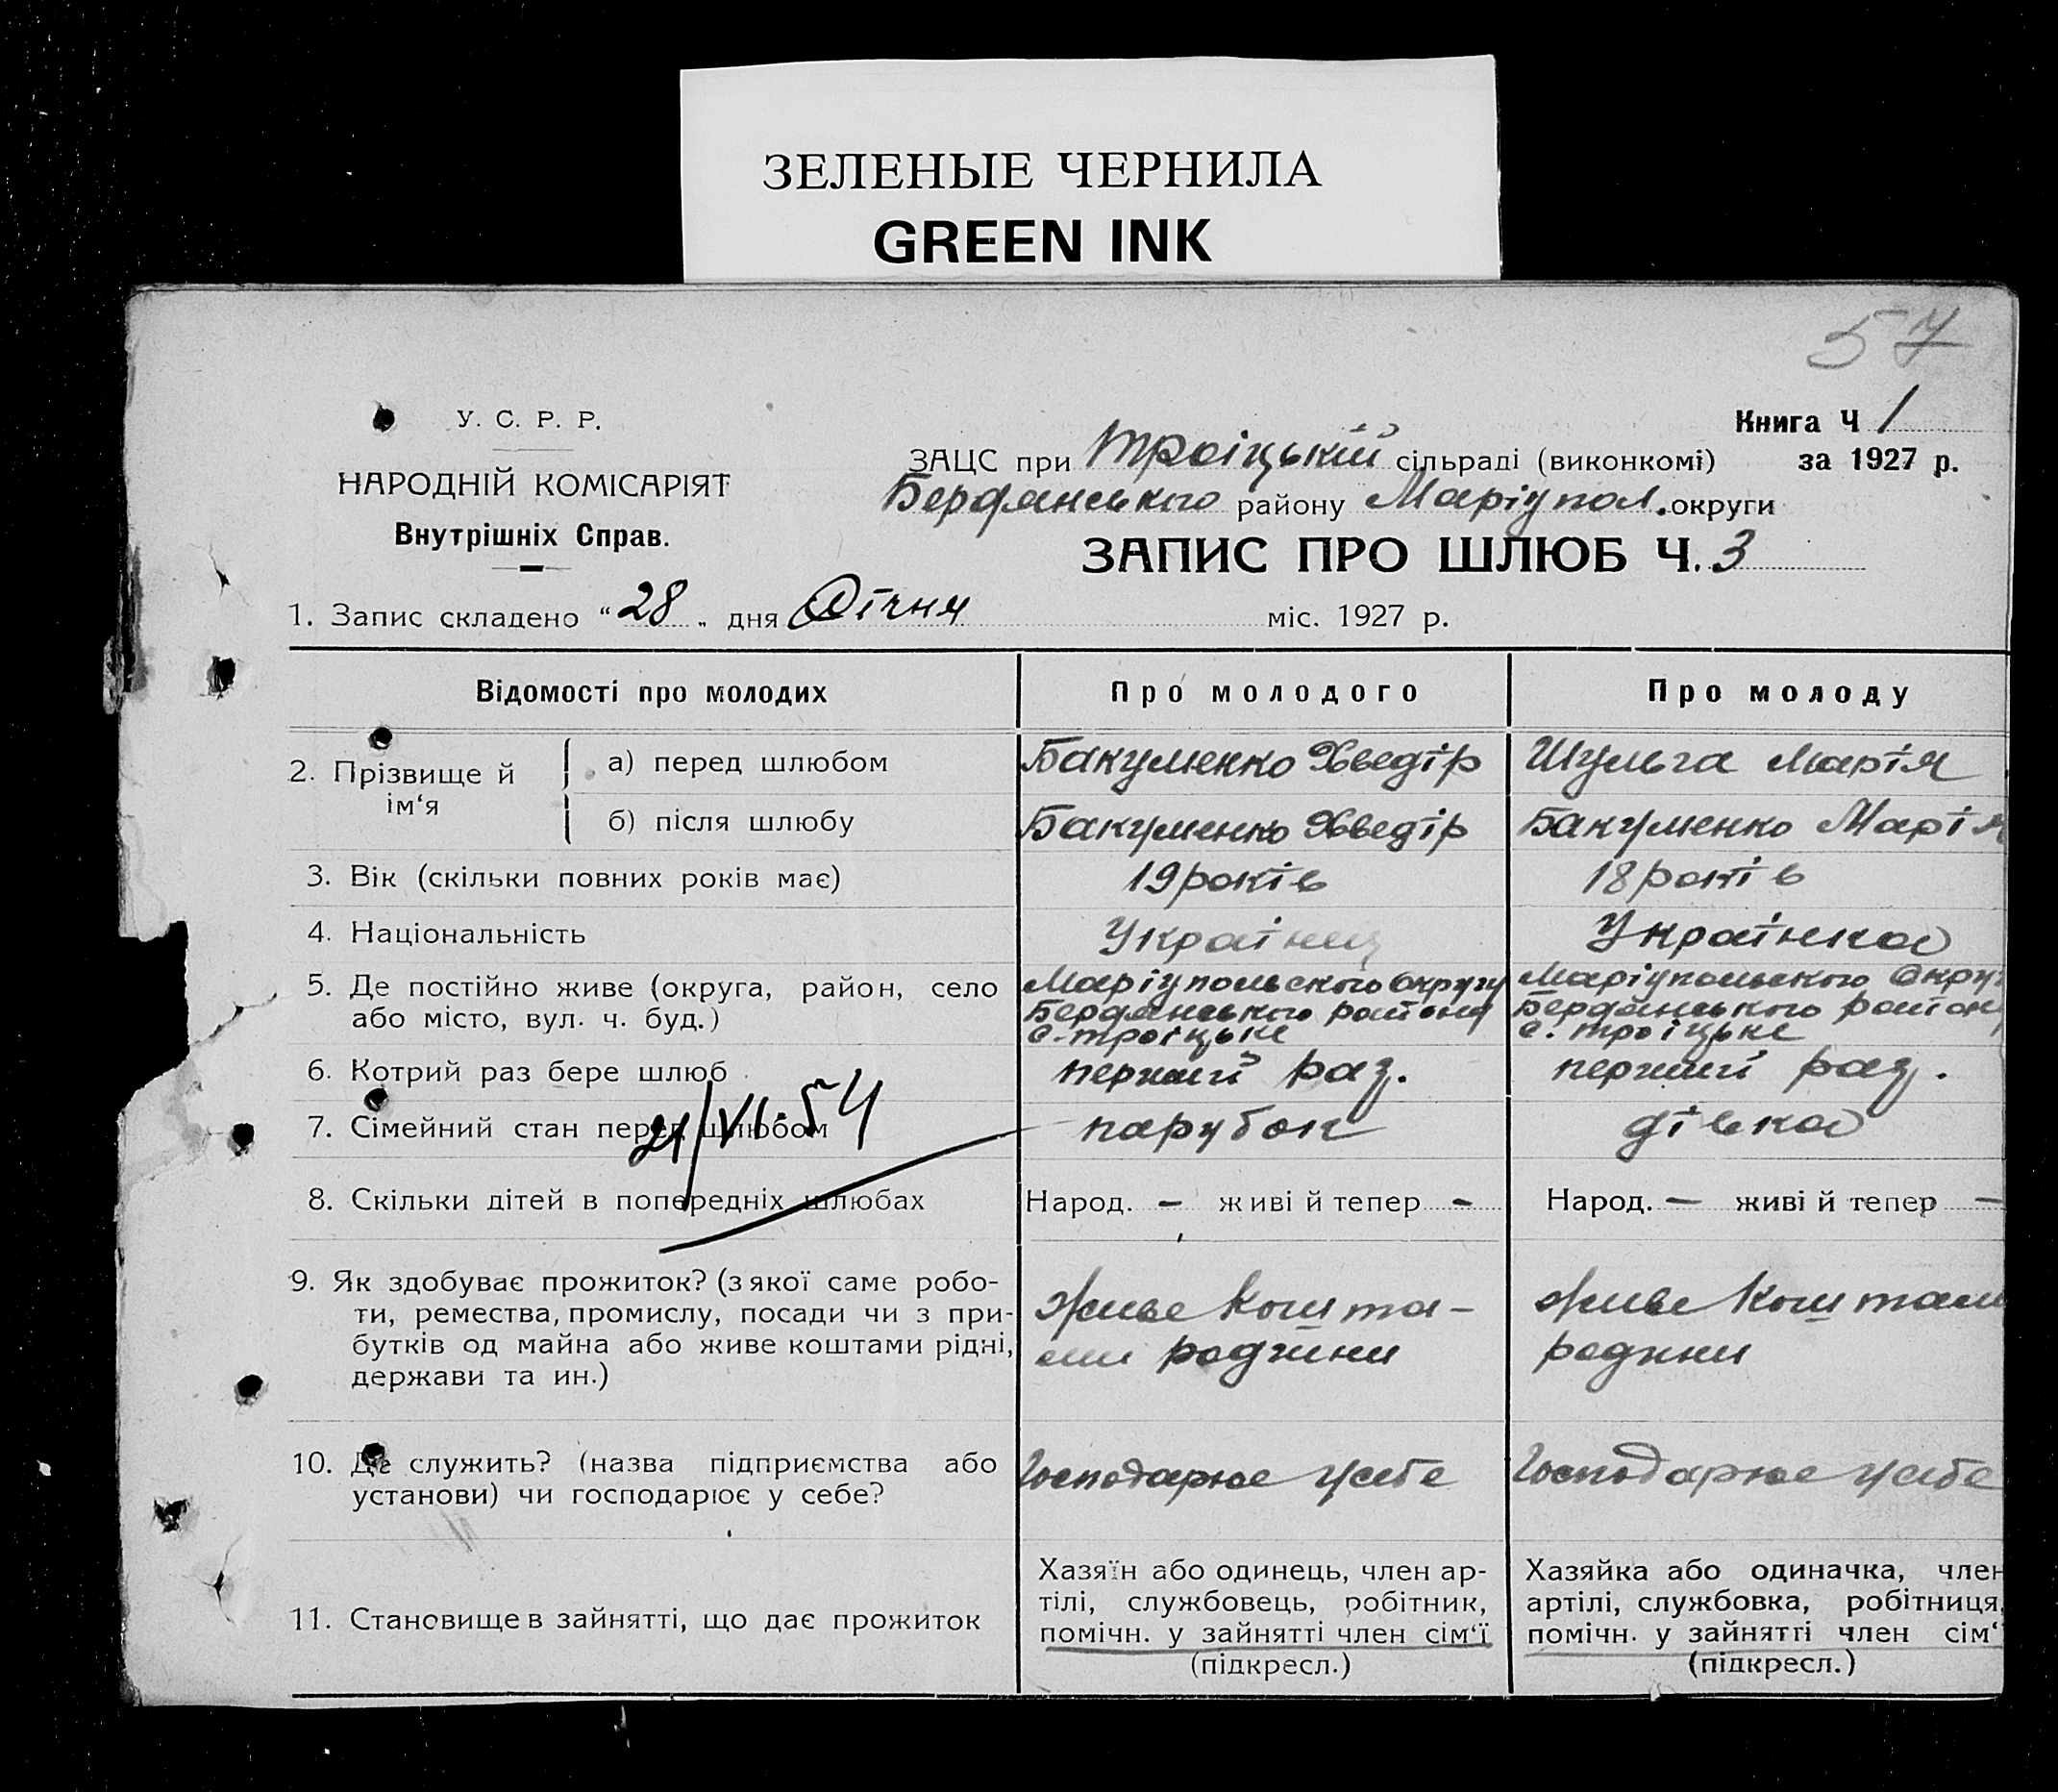 ЗЕЛЕНЫЕ ЧЕРНИЛА
GREEN INK
57
У. С. Р. Р.
НАРОДНІЙ КОМІСАРІЯТ
Внутрішніх Справ.
Книга Ч 1
ЗАЦС при Троіцькій сільраді (виконкомі) за 1927 р.
Бердянського району Маріупол. округи
ЗАПИС ПРО ШЛЮБ Ч. 3
1. Запис складено “28„ дня Січня міс. 1927 р.
Відомості про молодих
Про молодого
Про молоду
2. Прізвище й ім‘я
а) перед шлюбом
Бакуменко Хведір
Шульга Марія
б) після шлюбу
Бакуменко Хведір
Бакуменко Марія
3. Вік (скільки повних років має)
19 років
18 років
4. Національність
Українец
Українка
5. Де постійно живе (округа, район, село
або місто, вул. ч. буд.)
Маріупольского округу
Бердянського району
с. троіцьке
Маріупольського Окру
Бердянського район
с. троіцьке
6. Котрий раз бере шлюб
перший раз.
перший раз.
7. Сімейний стан перед шлюбом
21/VI-54
парубок
дівка
8. Скільки дітей в попередніх шлюбах
Народ. – живі й тепер –
Народ. – живі й тепер –
9. Як здобуває прожиток? (з якої саме робо-
ти, ремества, промислу, посади чи з при-
бутків од майна або живе коштами рідні,
держави та ин.)
живе кошта-
ми родини
живе коштами
родини
10. Де служить? (назва підприємства або
установи) чи господарює у себе?
Господарює у себе
Господарює у себе
11. Становище в зайнятті, що дає прожиток
Хазяїн або одинець, член ар-
тілі, службовець, робітник,
помічн. у зайнятті член сім‘ї
(підкресл.)
Хазяйка або одиначка, член
артілі, службовка, робітниця,
помічн. у зайнятті член сім‘
(підкресл.)